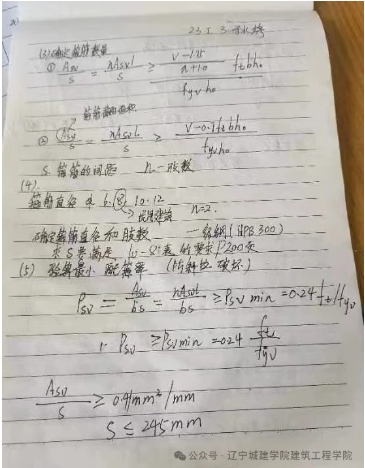 23 I. 3
(3)确定箍筋数量
① Asv/s = nAsv1/s ≥ (V - 1.75/(λ+1.0) ftbh₀)/(fyvh₀)
箍筋截面面积
② Asv/s = nAsv1/s ≥ (V-0.7ftbh₀)/(fyvh₀)
S 箍筋的间距 n-肢数
(4).
箍筋直径 6. 8. 10. 12
n=2.
确定箍筋直径和肢数 (HPB300)
求S 要满足 10-8 表的要求 P200页
(5) 验算最小配箍率 (防斜拉破坏)
ρsv = Asv/bs = nAsv1/bs ≥ρsv min =0.24ft/fyv
ρsv ≥ρsv min =0.24 ft/fyv
Asv/s ≥ 0.41mm²/mm
S ≤ 245mm
公众号 · 辽宁城建学院建筑工程学院